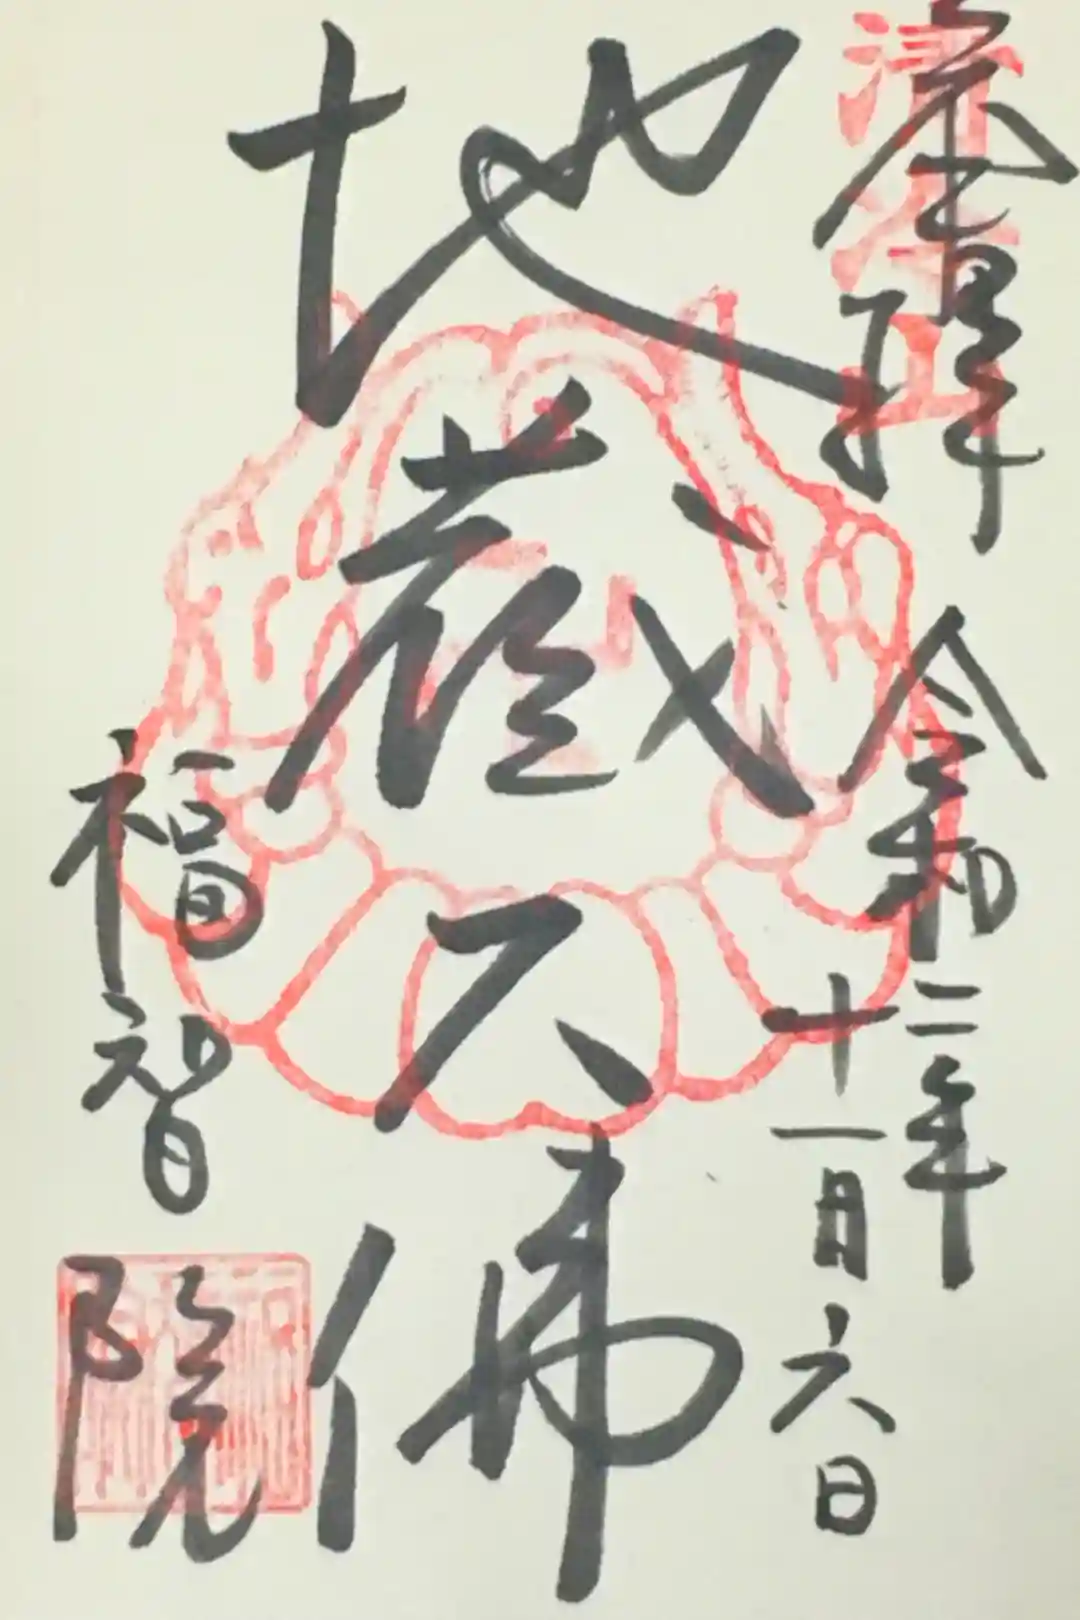 清冷山
奉拝 令和二年
十一月六日
地蔵大佛
福智院